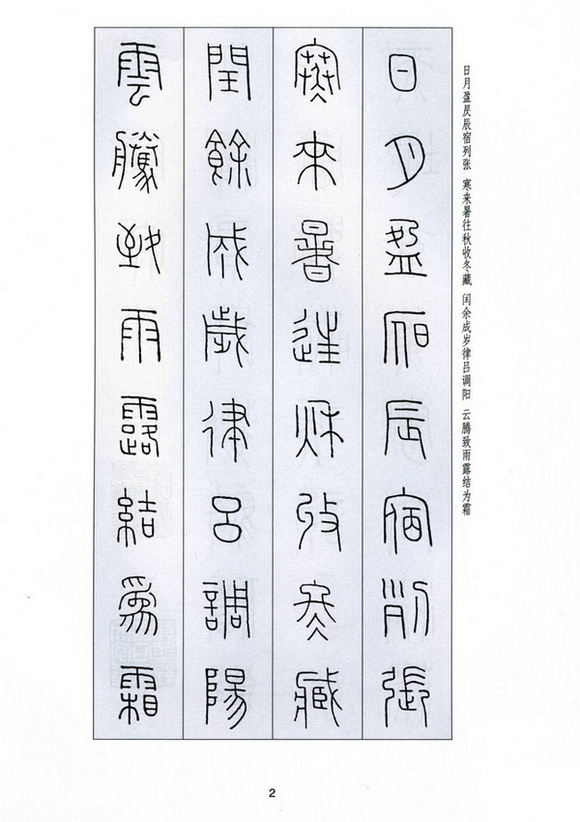 日月盈昃辰宿列张 寒来暑往秋收冬藏 闰余成岁律吕调阳 云腾致雨露结为霜
日月盈昃辰宿列張
寒來暑往秋收冬藏
閏餘成歲律呂調陽
雲騰致雨露結爲霜
2